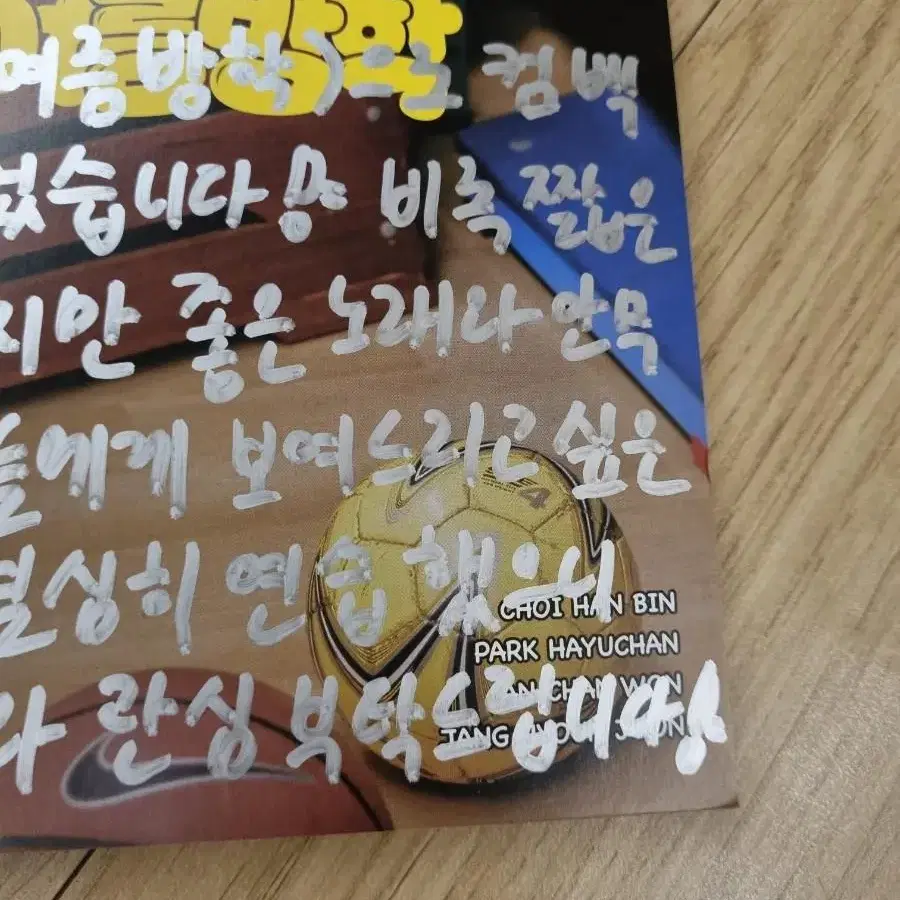 여름방학
여름방학)으로 컴백
었습니다 비록 짧은
지만 좋은 노래라 안무
들에게 보여드리고 싶은
열심히 연습 했으니
관심 부탁드립니다!
4
CHOI HAN BIN
PARK HAYUCHAN
AN CHAN WON
JANG